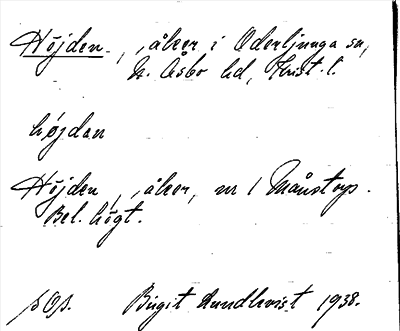 Höjden, åker i Oderljunga sn,
N. Åsbo hd, Krist. l.
höjdan
Höjden, åker, nr 1 Månstorp.
Bel. högt.
Birgit Lundkvist 1938.